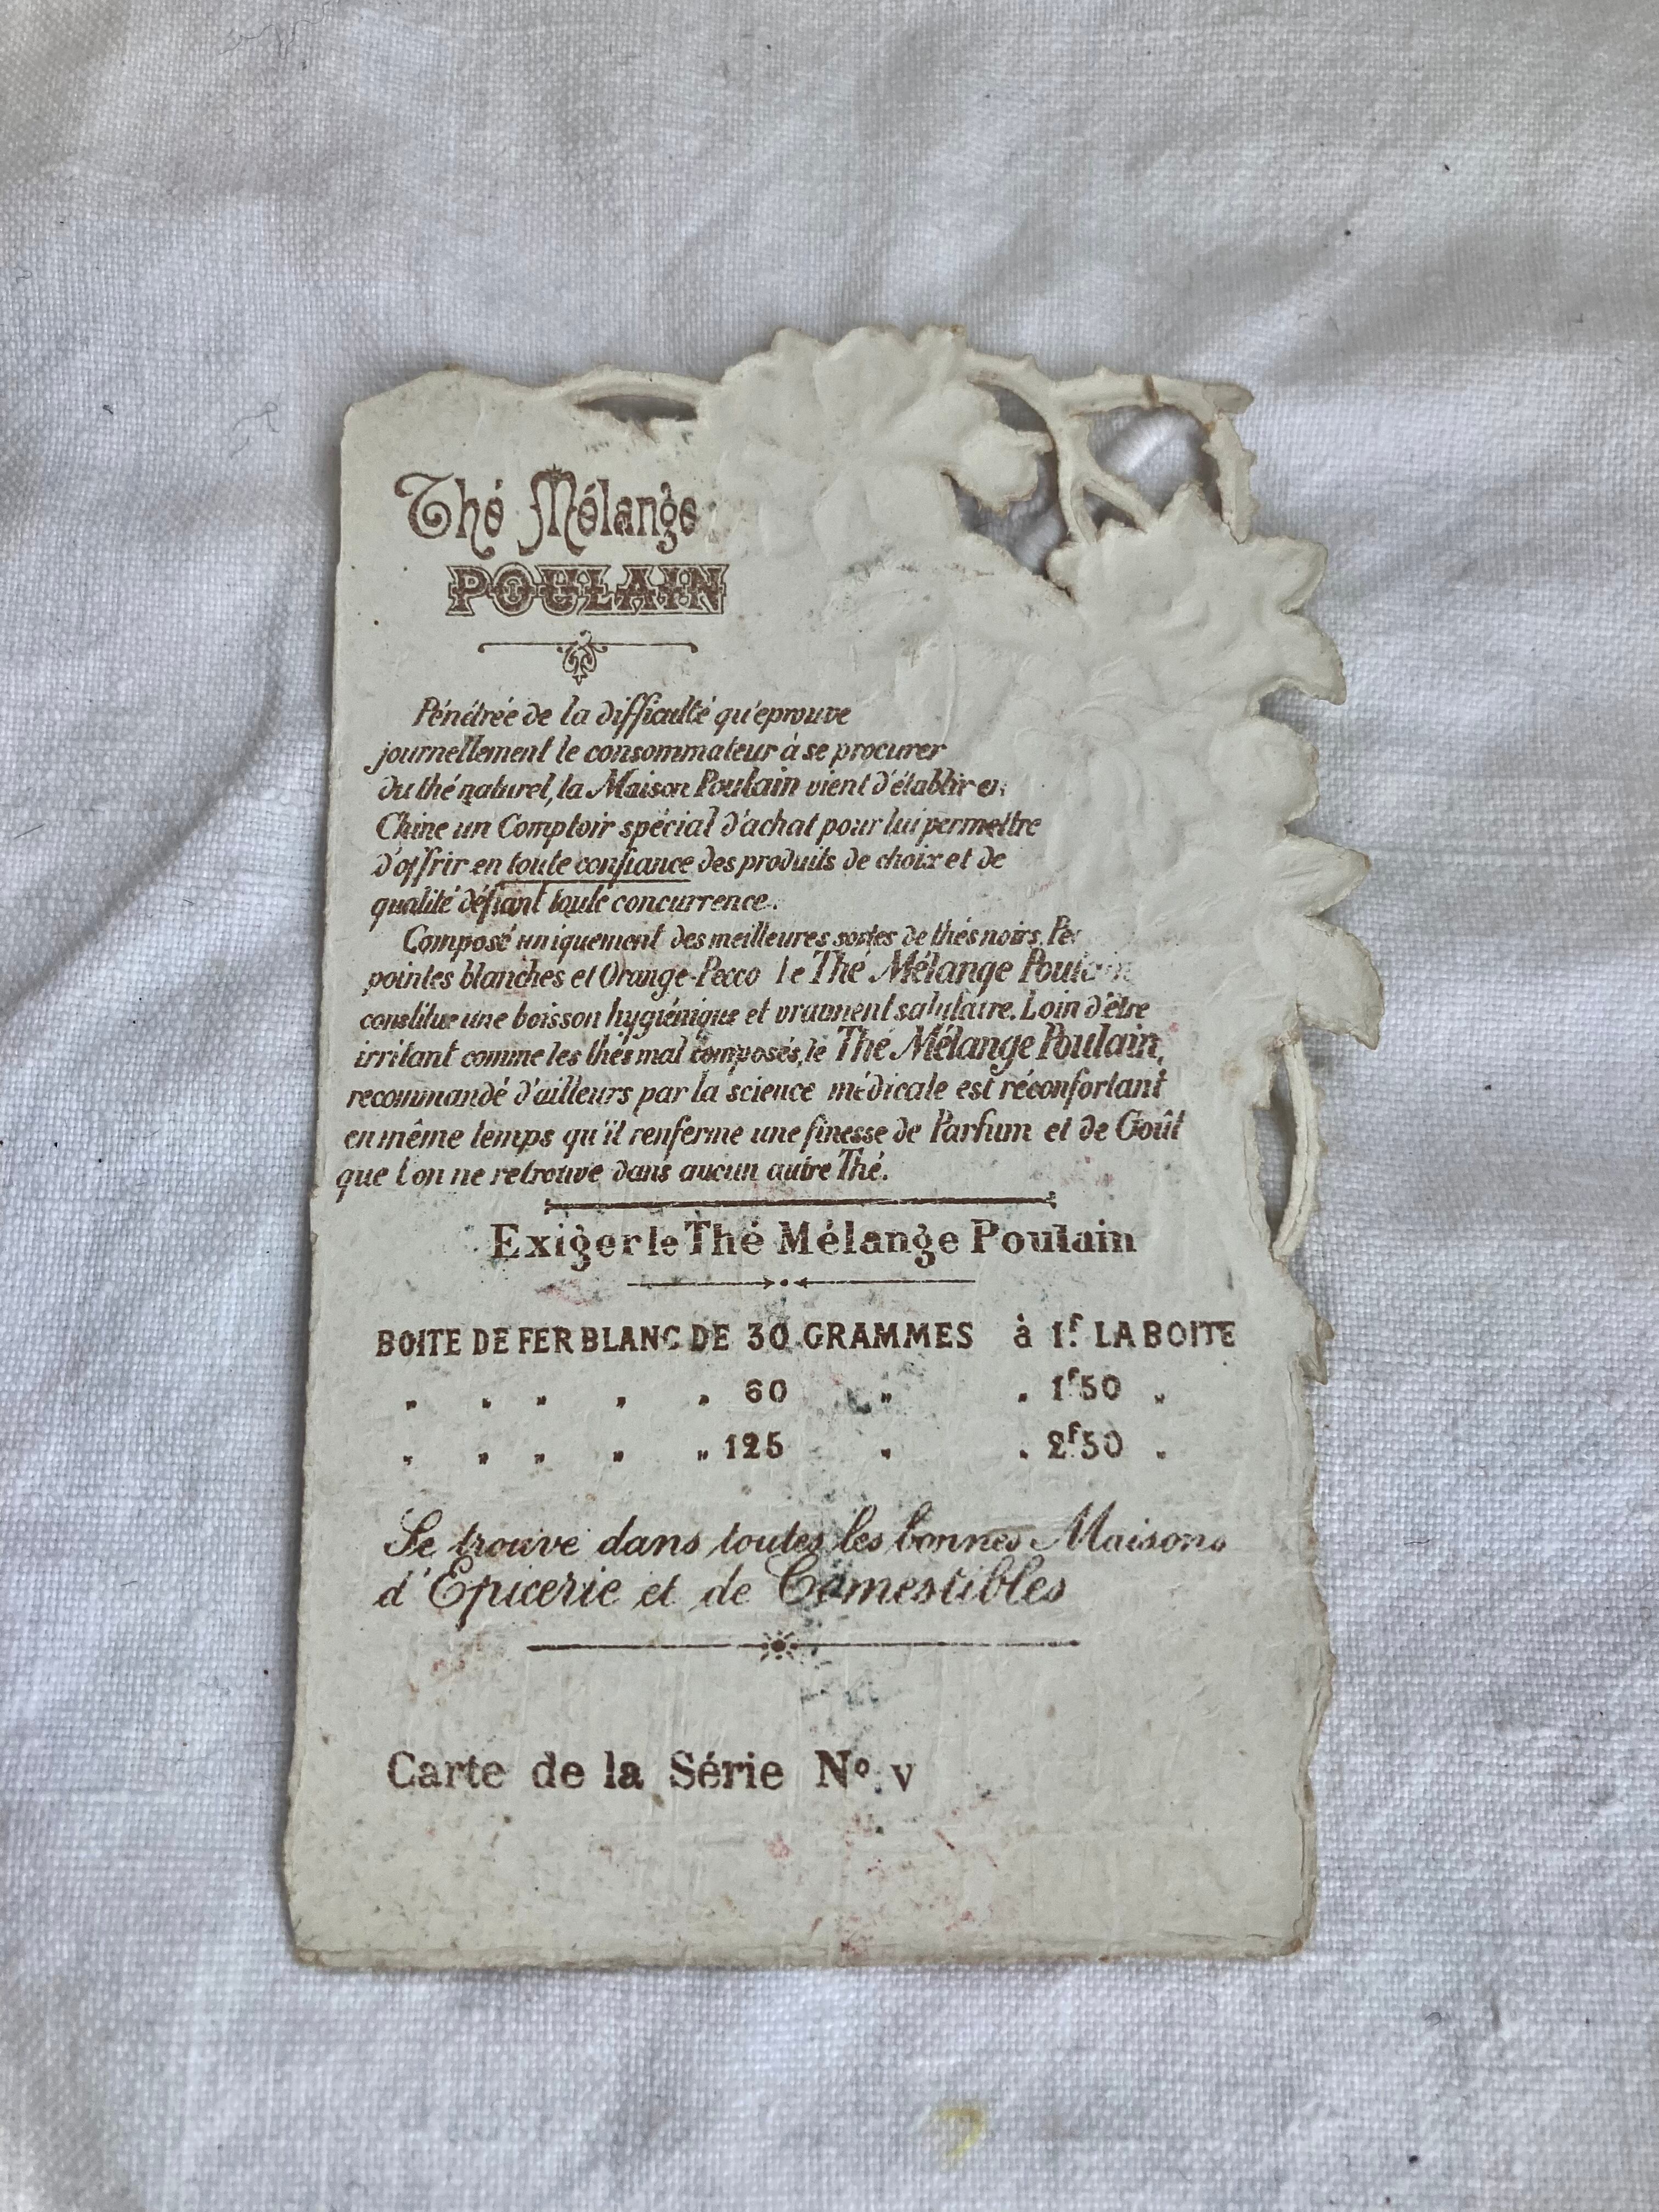 Thé Mélange
POULAIN
Pénétrée de la difficulté qu'eprouve
journellement le consommateur à se procurer
du thé naturel, la Maison Poulain vient d'établir en
Chine un Comptoir spécial d'achat pour lui permettre
d'offrir en toute confiance des produits de choix et de
qualité défiant toute concurrence.
Composé uniquement des meilleures sortes de thés noirs,
pointes blanches et Orange-Pecco le Thé Mélange Poulain
constitue une boisson hygiénique et vraiment salutaire. Loin d'être
irritant comme les thés mal composés, le Thé Mélange Poulain,
recommandé d'ailleurs par la science médicale est réconfortant
en même temps qu'il renferme une finesse de Parfum et de Goût
que l'on ne retrouve dans aucun autre Thé.
Exiger le Thé Mélange Poulain
BOITE DE FER BLANC DE 30 GRAMMES à 1f. LA BOITE
" " " " " 60 " " 1f50 "
" " " " " 125 " " 2f50 "
Se trouve dans toutes les bonnes Maisons
d'Epicerie et de Comestibles
Carte de la Série No. V